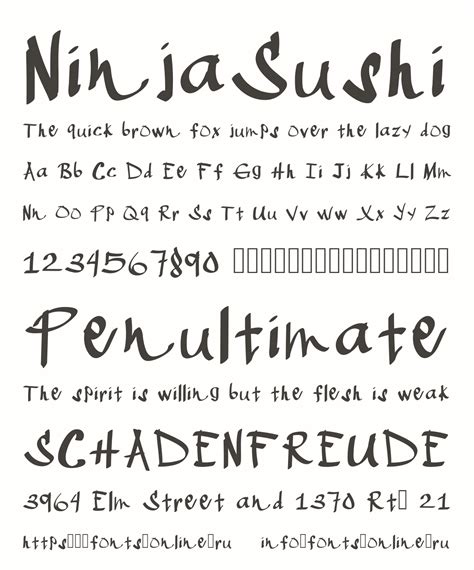 NinjaSushi
The quick brown fox jumps over the lazy dog
Aa Bb Cc Dd Ee Ff Gg Hh Ii Jj Kk Ll Mm
Nn Oo Pp Qq Rr Ss Tt Uu Vv Ww Xx Yy Zz
1234567890 ▯▯▯▯▯▯▯▯▯▯▯▯▯▯▯
Penultimate
The spirit is willing but the flesh is weak
SCHADENFREUDE
3964 Elm Street and 1370 Rt▯ 21
https▯▯▯fonts▯online▯ru info▯fonts▯online▯ru